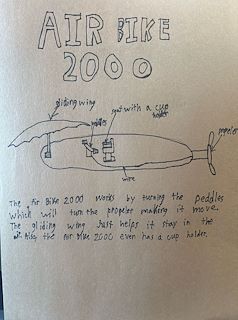 AIR BIKE
2000
gliding wing
seat with a cup
holder
peddles
propeler
wire
The Air Bike 2000 works by turning the peddles
which will turn the propeler making it move.
The gliding wing Just helps it stay in the
air. Also, the Air Bike 2000 even has a cup holder.